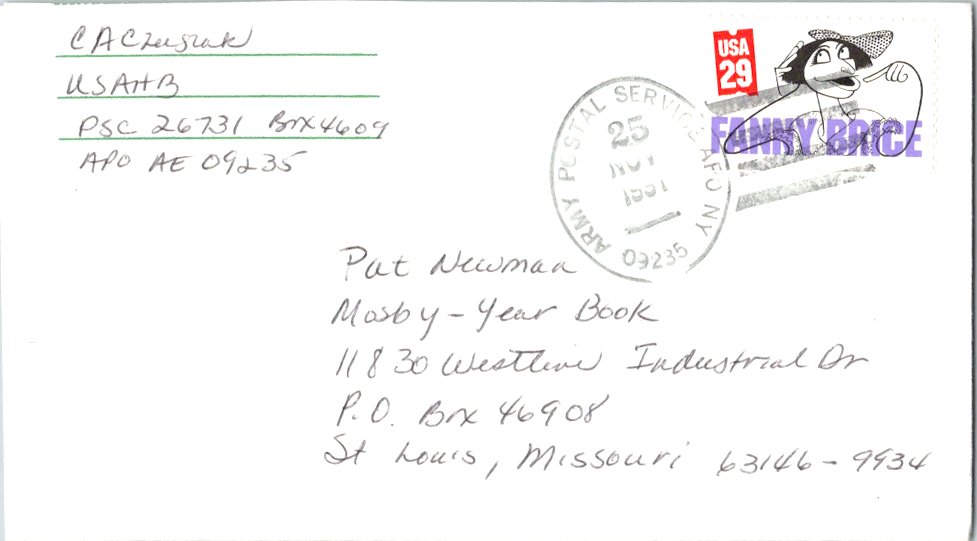 C A
USAHB
PSC 26731 Box 4609
APO AE 09235
USA
29
FANNY BRICE
ARMY POSTAL SERVICE APO NY
25
NOV
1991
09235
Pat Newman
Mosby - Year Book
11830 Westline Industrial Dr
P.O. Box 46908
St Louis, Missouri 63146-9934